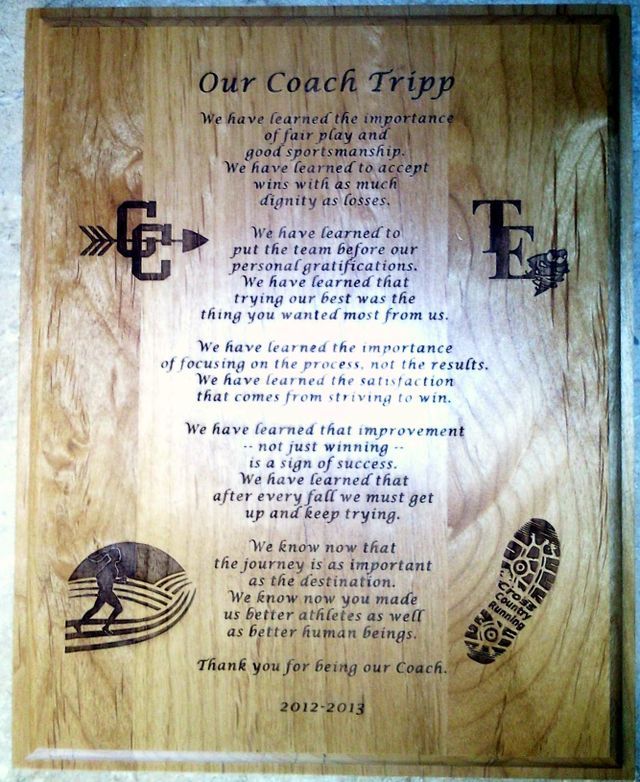 Our Coach Tripp
We have learned the importance
of fair play and
good sportsmanship.
We have learned to accept
wins with as much
dignity as losses.
CC
TE
We have learned to
put the team before our
personal gratifications.
We have learned that
trying our best was the
thing you wanted most from us.
We have learned the importance
of focusing on the process, not the results.
We have learned the satisfaction
that comes from striving to win.
We have learned that improvement
-- not just winning --
is a sign of success.
We have learned that
after every fall we must get
up and keep trying.
We know now that
the journey is as important
as the destination.
We know now you made
us better athletes as well
as better human beings.
Cross
Country
Running
Thank you for being our Coach.
2012-2013